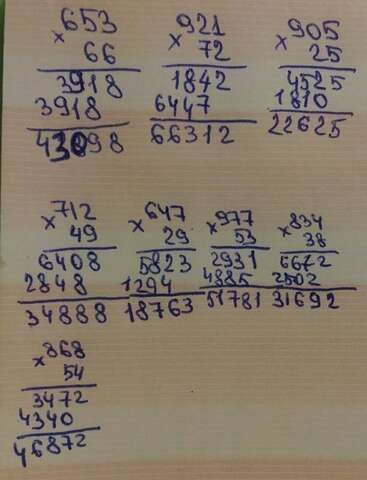 ×653 ×921 ×905
66 72 25
3918 1842 4525
3918 6447 1810
43098 66312 22625
×712 ×647 ×977 ×834
49 29 53 38
6408 5823 2931 6672
2848 1294 4885 2502
34888 18763 51781 31692
×868
54
3472
4340
46872